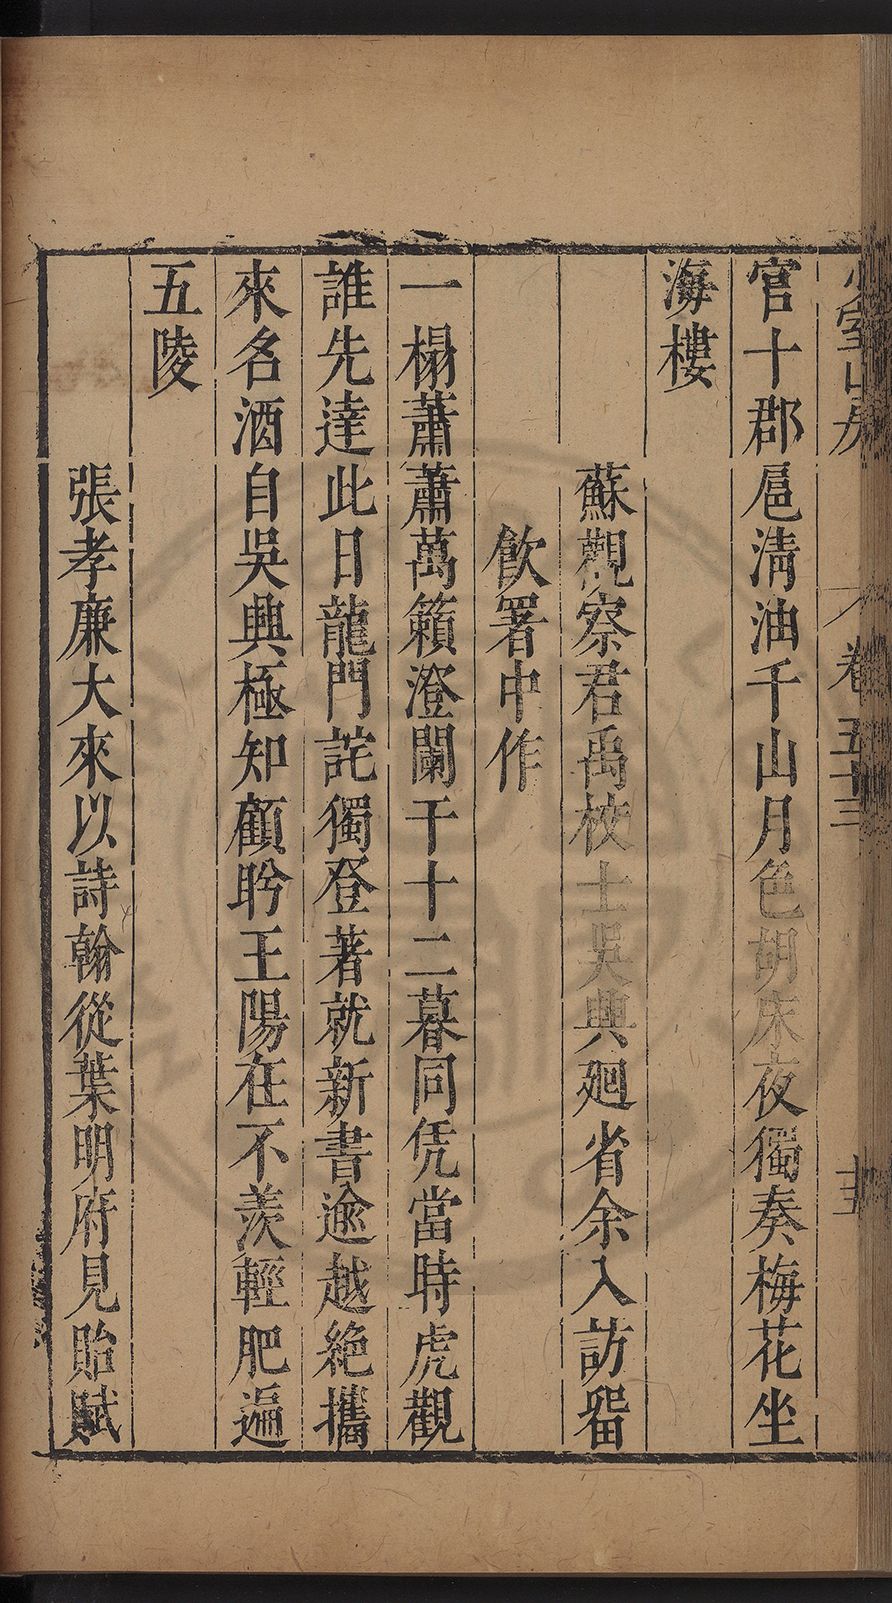 少室山房 卷五十三 十三
官十郡扈淸油千山月色胡床夜獨奏梅花坐
海樓
蘇觀察君禹校士吳興廻省余入訪畱
飲署中作
一榻蕭蕭萬籟澄闌干十二暮同凭當時虎觀
誰先達此日龍門詫獨登著就新書逾越絶攜
來名酒自吳興極知顧盻王陽在不羨輕肥遍
五陵
張孝廉大來以詩翰從葉明府見貽賦